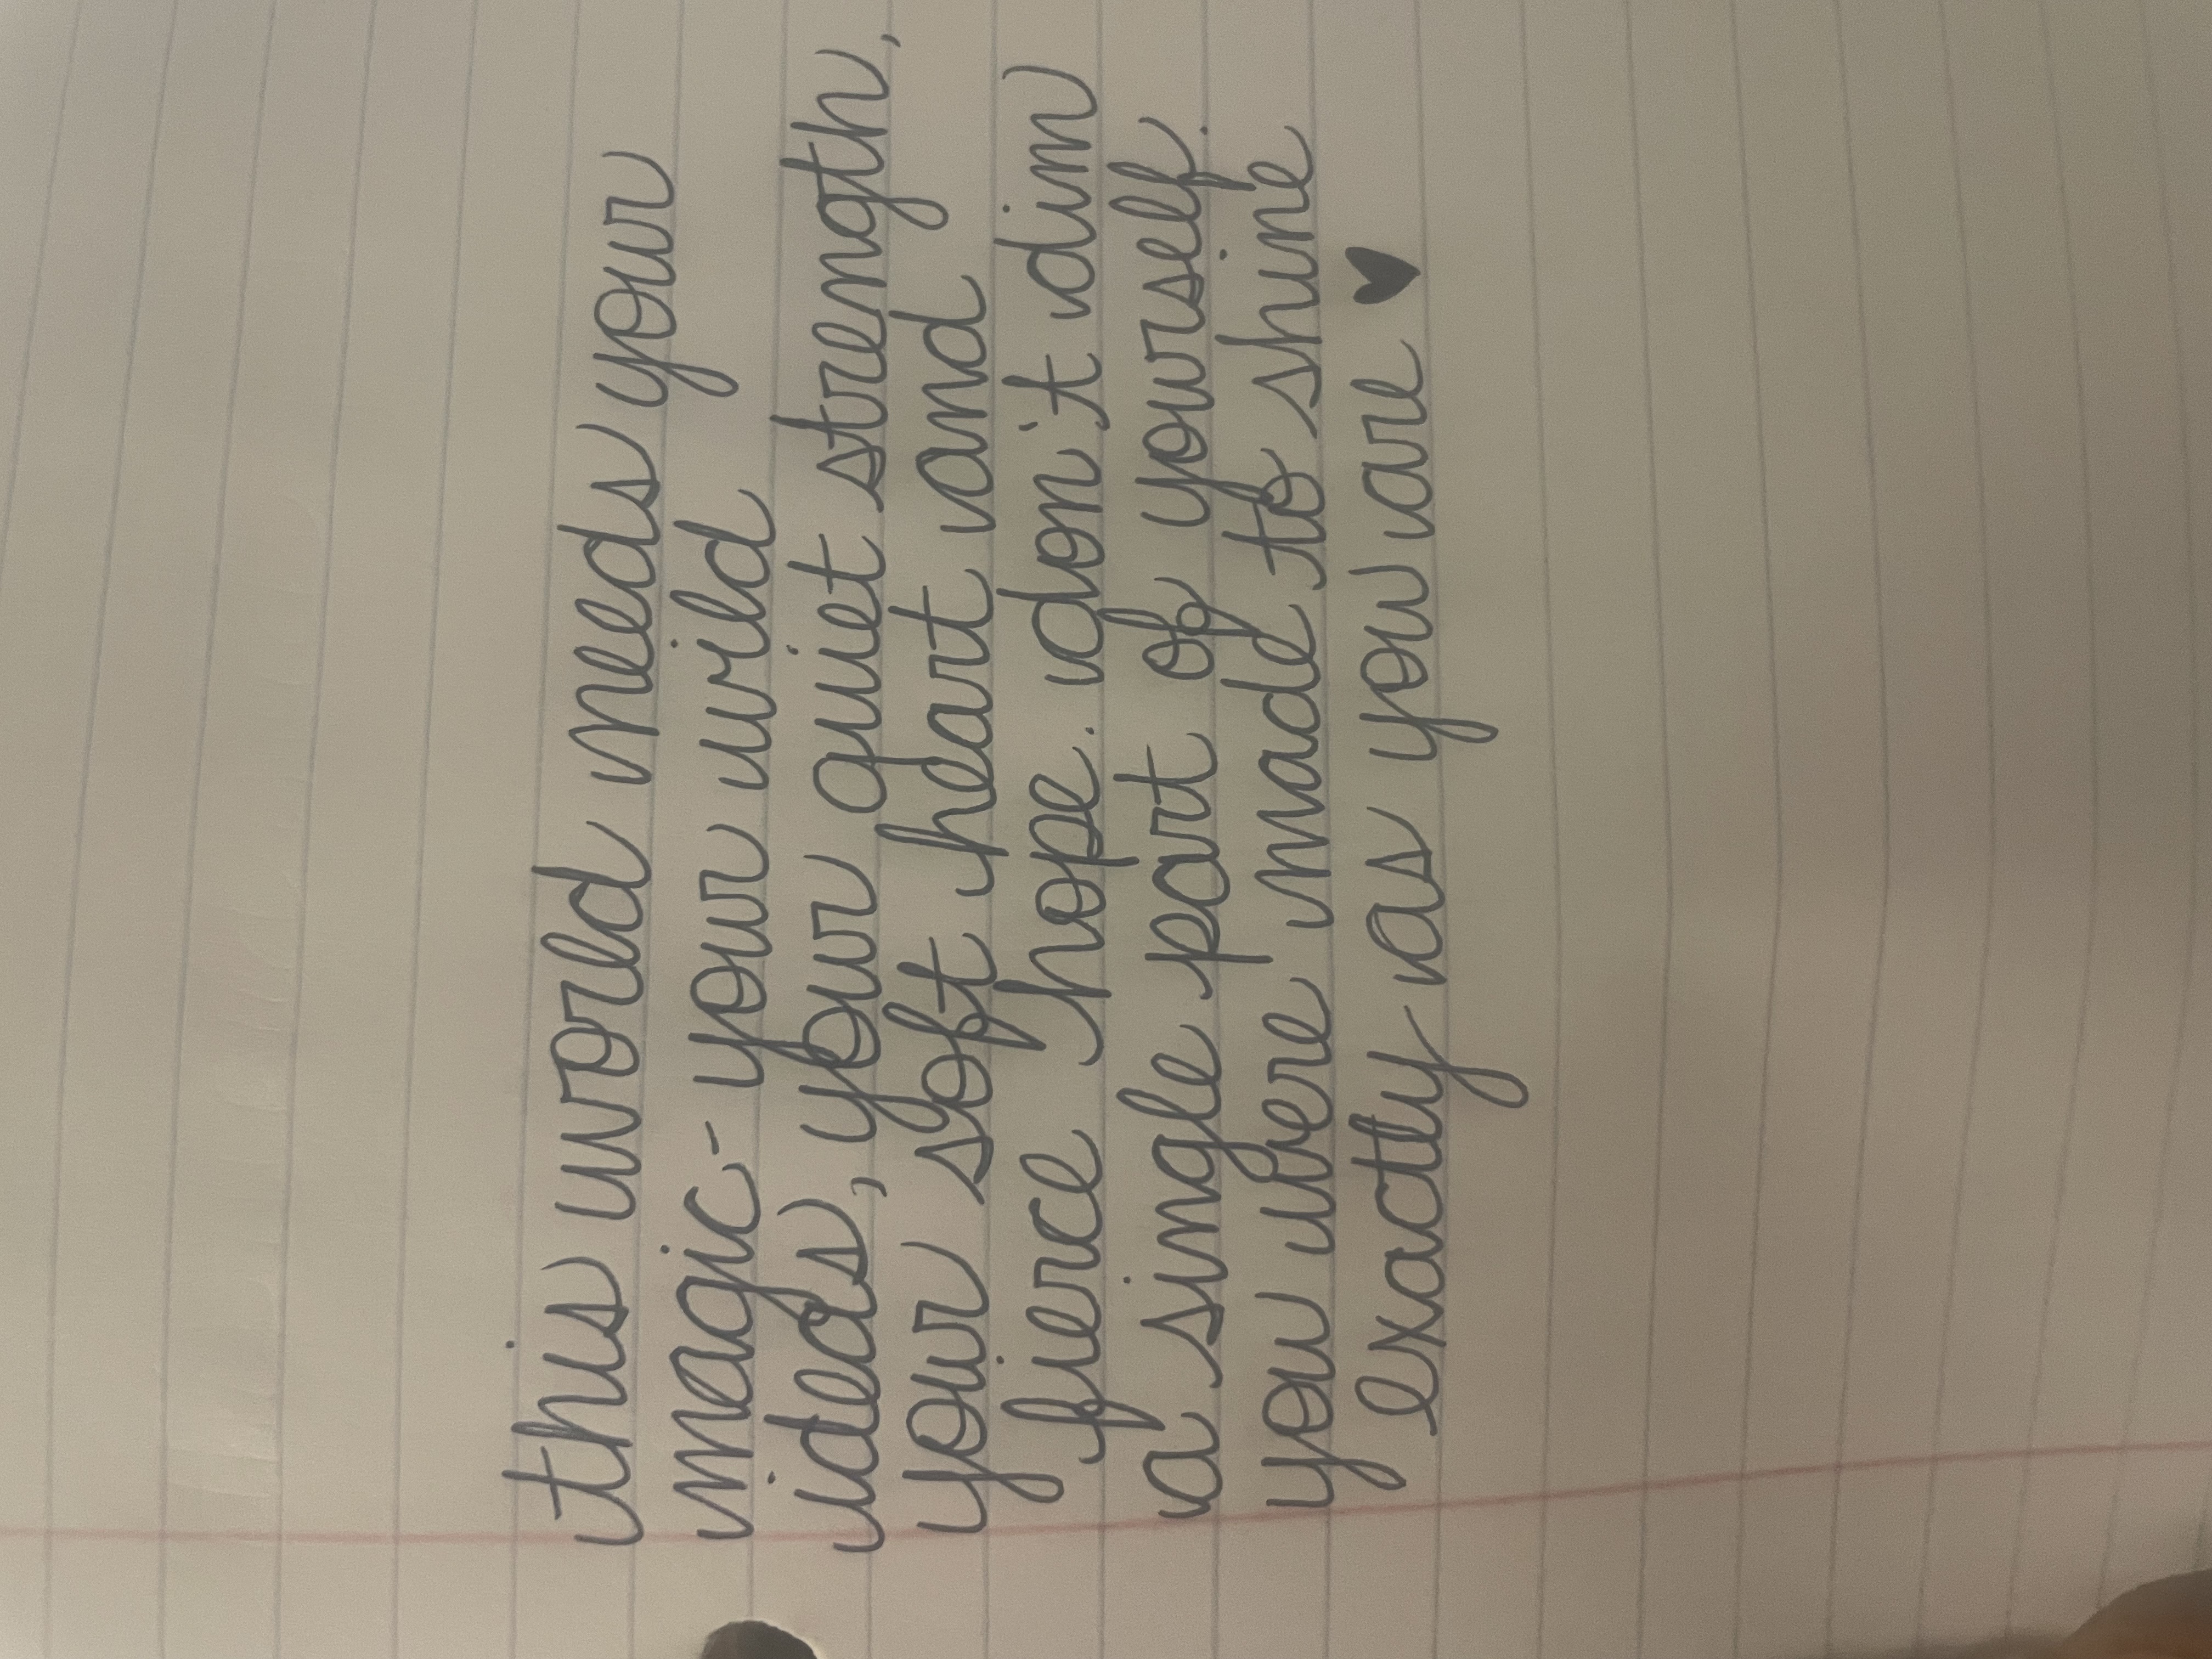 this world needs your
magic- your wild
ideas, your quiet strength,
your soft heart and
fierce hope. don't dim
a single part of yourself.
you were made to shine
exactly as you are ♥